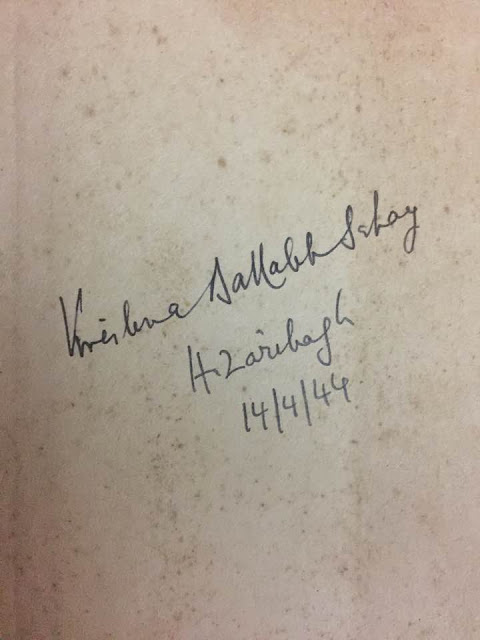 Krishna Ballabh Sahay
Hazaribagh
14/4/44